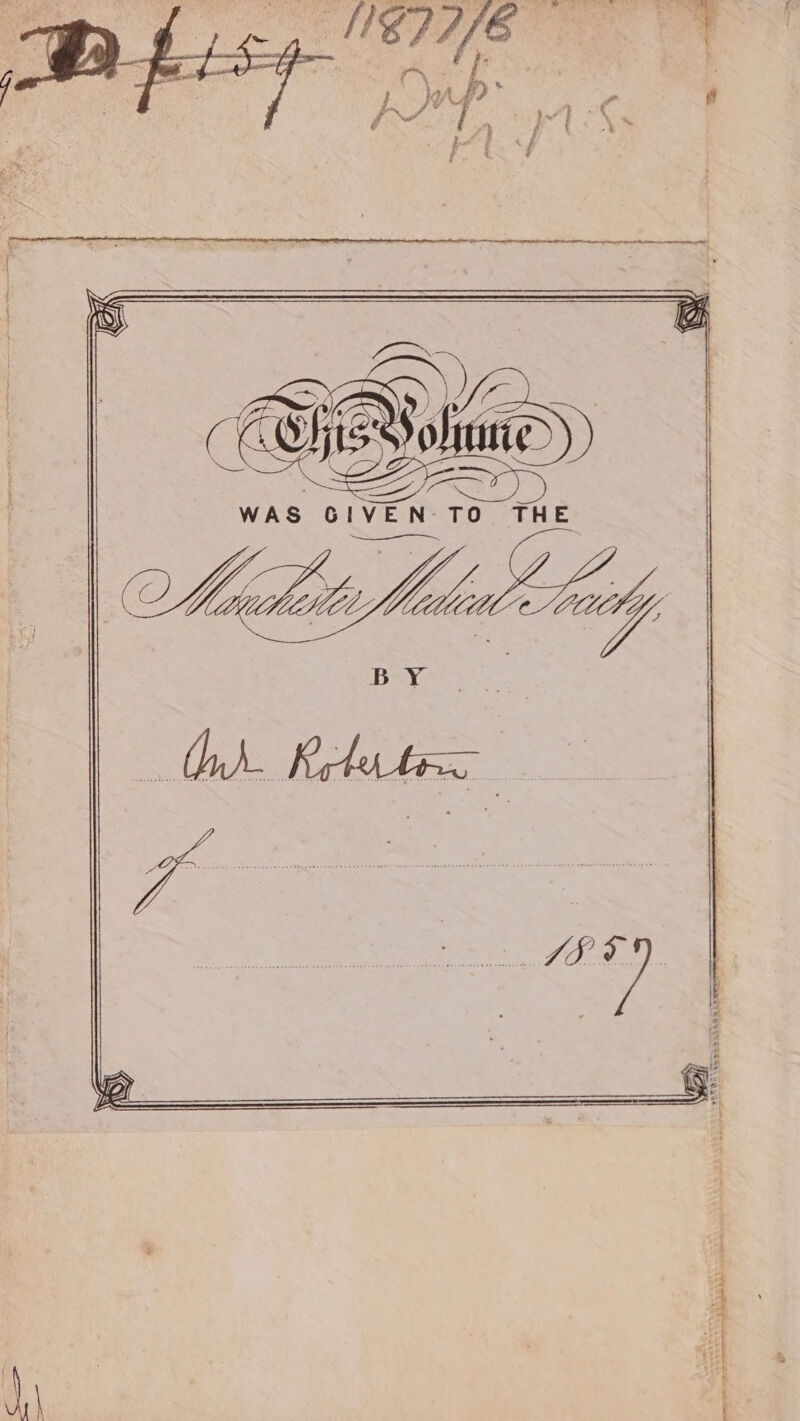 11877/B
f 159
Dup.
M.M.S.
This Volume
WAS GIVEN TO THE
Manchester Medical Society,
BY
Roberton
of
1857